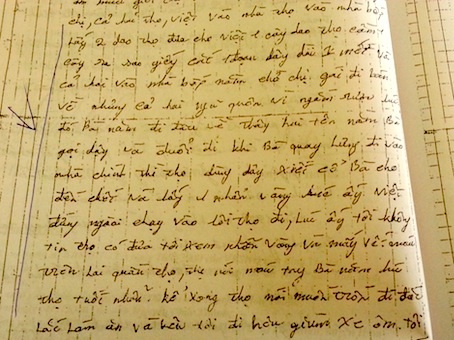 chị, cả hai thọ, việt vào nhà thọ vào nhà bếp
lấy 2 dao thọ đưa cho việt 1 cây dao thọ cầm 1
cây ra sau giây cắt đoạn dây dài 1 mét và
cả hai vào nhà bếp nằm chờ chị gái đi bán
về nhưng cả hai ngủ quên vì ngấm rượu
đó, Bà năm đi đâu về thấy hai tên nằm Bà
gọi dậy và đuổi đi khi Bà quay lưng đi vào
nhà chính thì thọ dùng dây xiết cổ Bà cho
đến chết và lấy nhẫn vàng ấy việt
đứng ngoài chạy vào lôi thọ đi, lúc ấy tôi không
tin thọ có đưa tôi xem nhẫn vàng và mấy vết máu
trên lai quần thọ, nói máu tay Bà năm
thọ tuốt nhẫn. kể xong thọ nói muốn trốn đi đắc
lắc làm ăn và kêu tôi đi hỏi giùm xe ôm. tôi